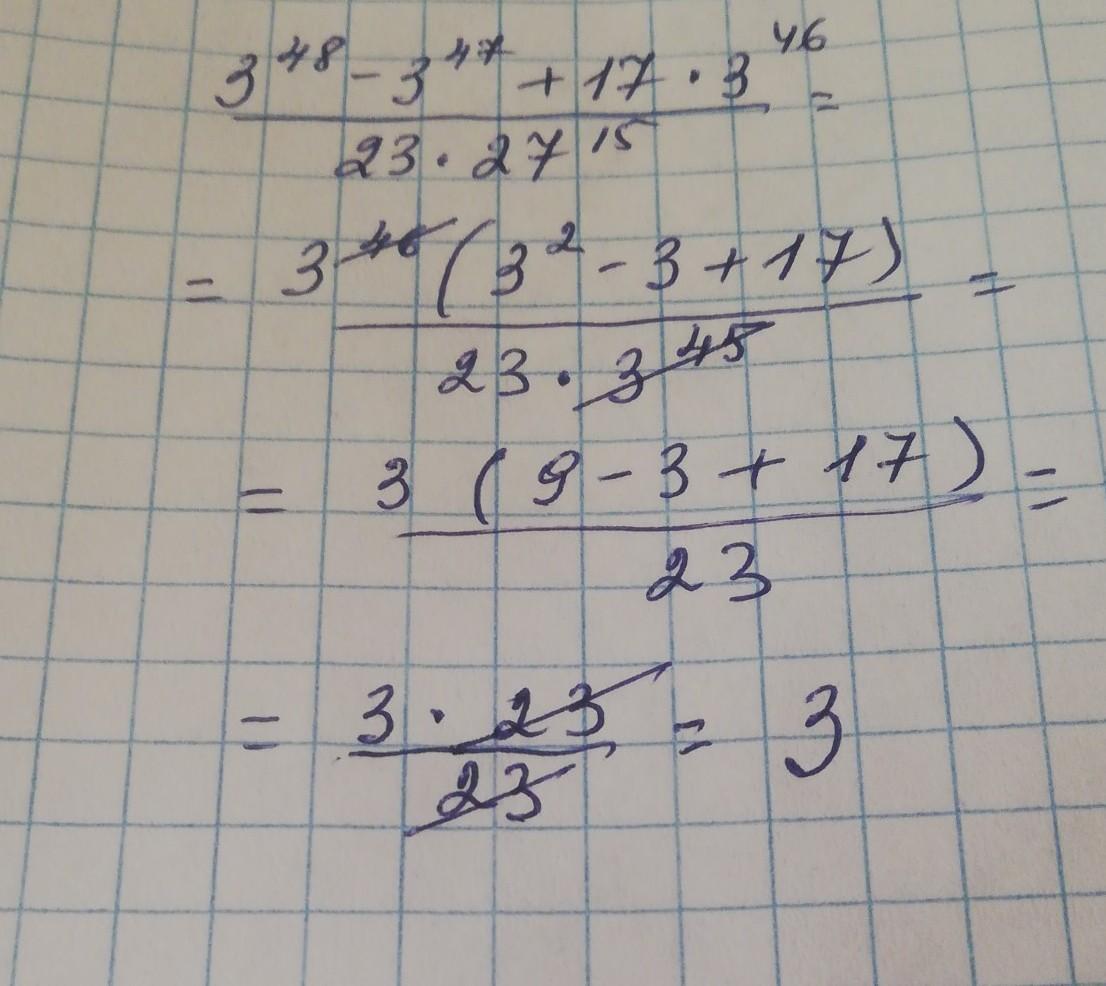 3^48 - 3^47 + 17 · 3^46 =
23 · 27^15
= 3^46 (3^2 - 3 + 17) =
23 · 3^45
= 3 (9 - 3 + 17) =
23
= 3 · 23 = 3
23